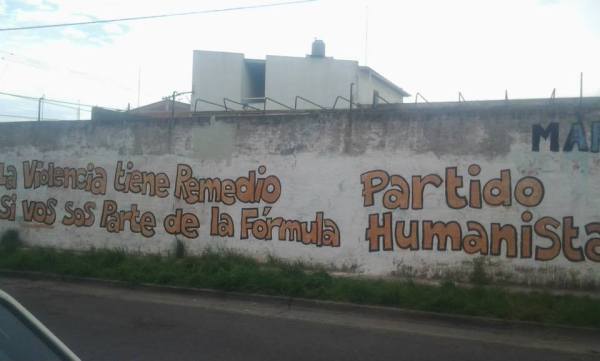 La Violencia tiene Remedio
si vos sos Parte de la Fórmula
Partido
Humanista